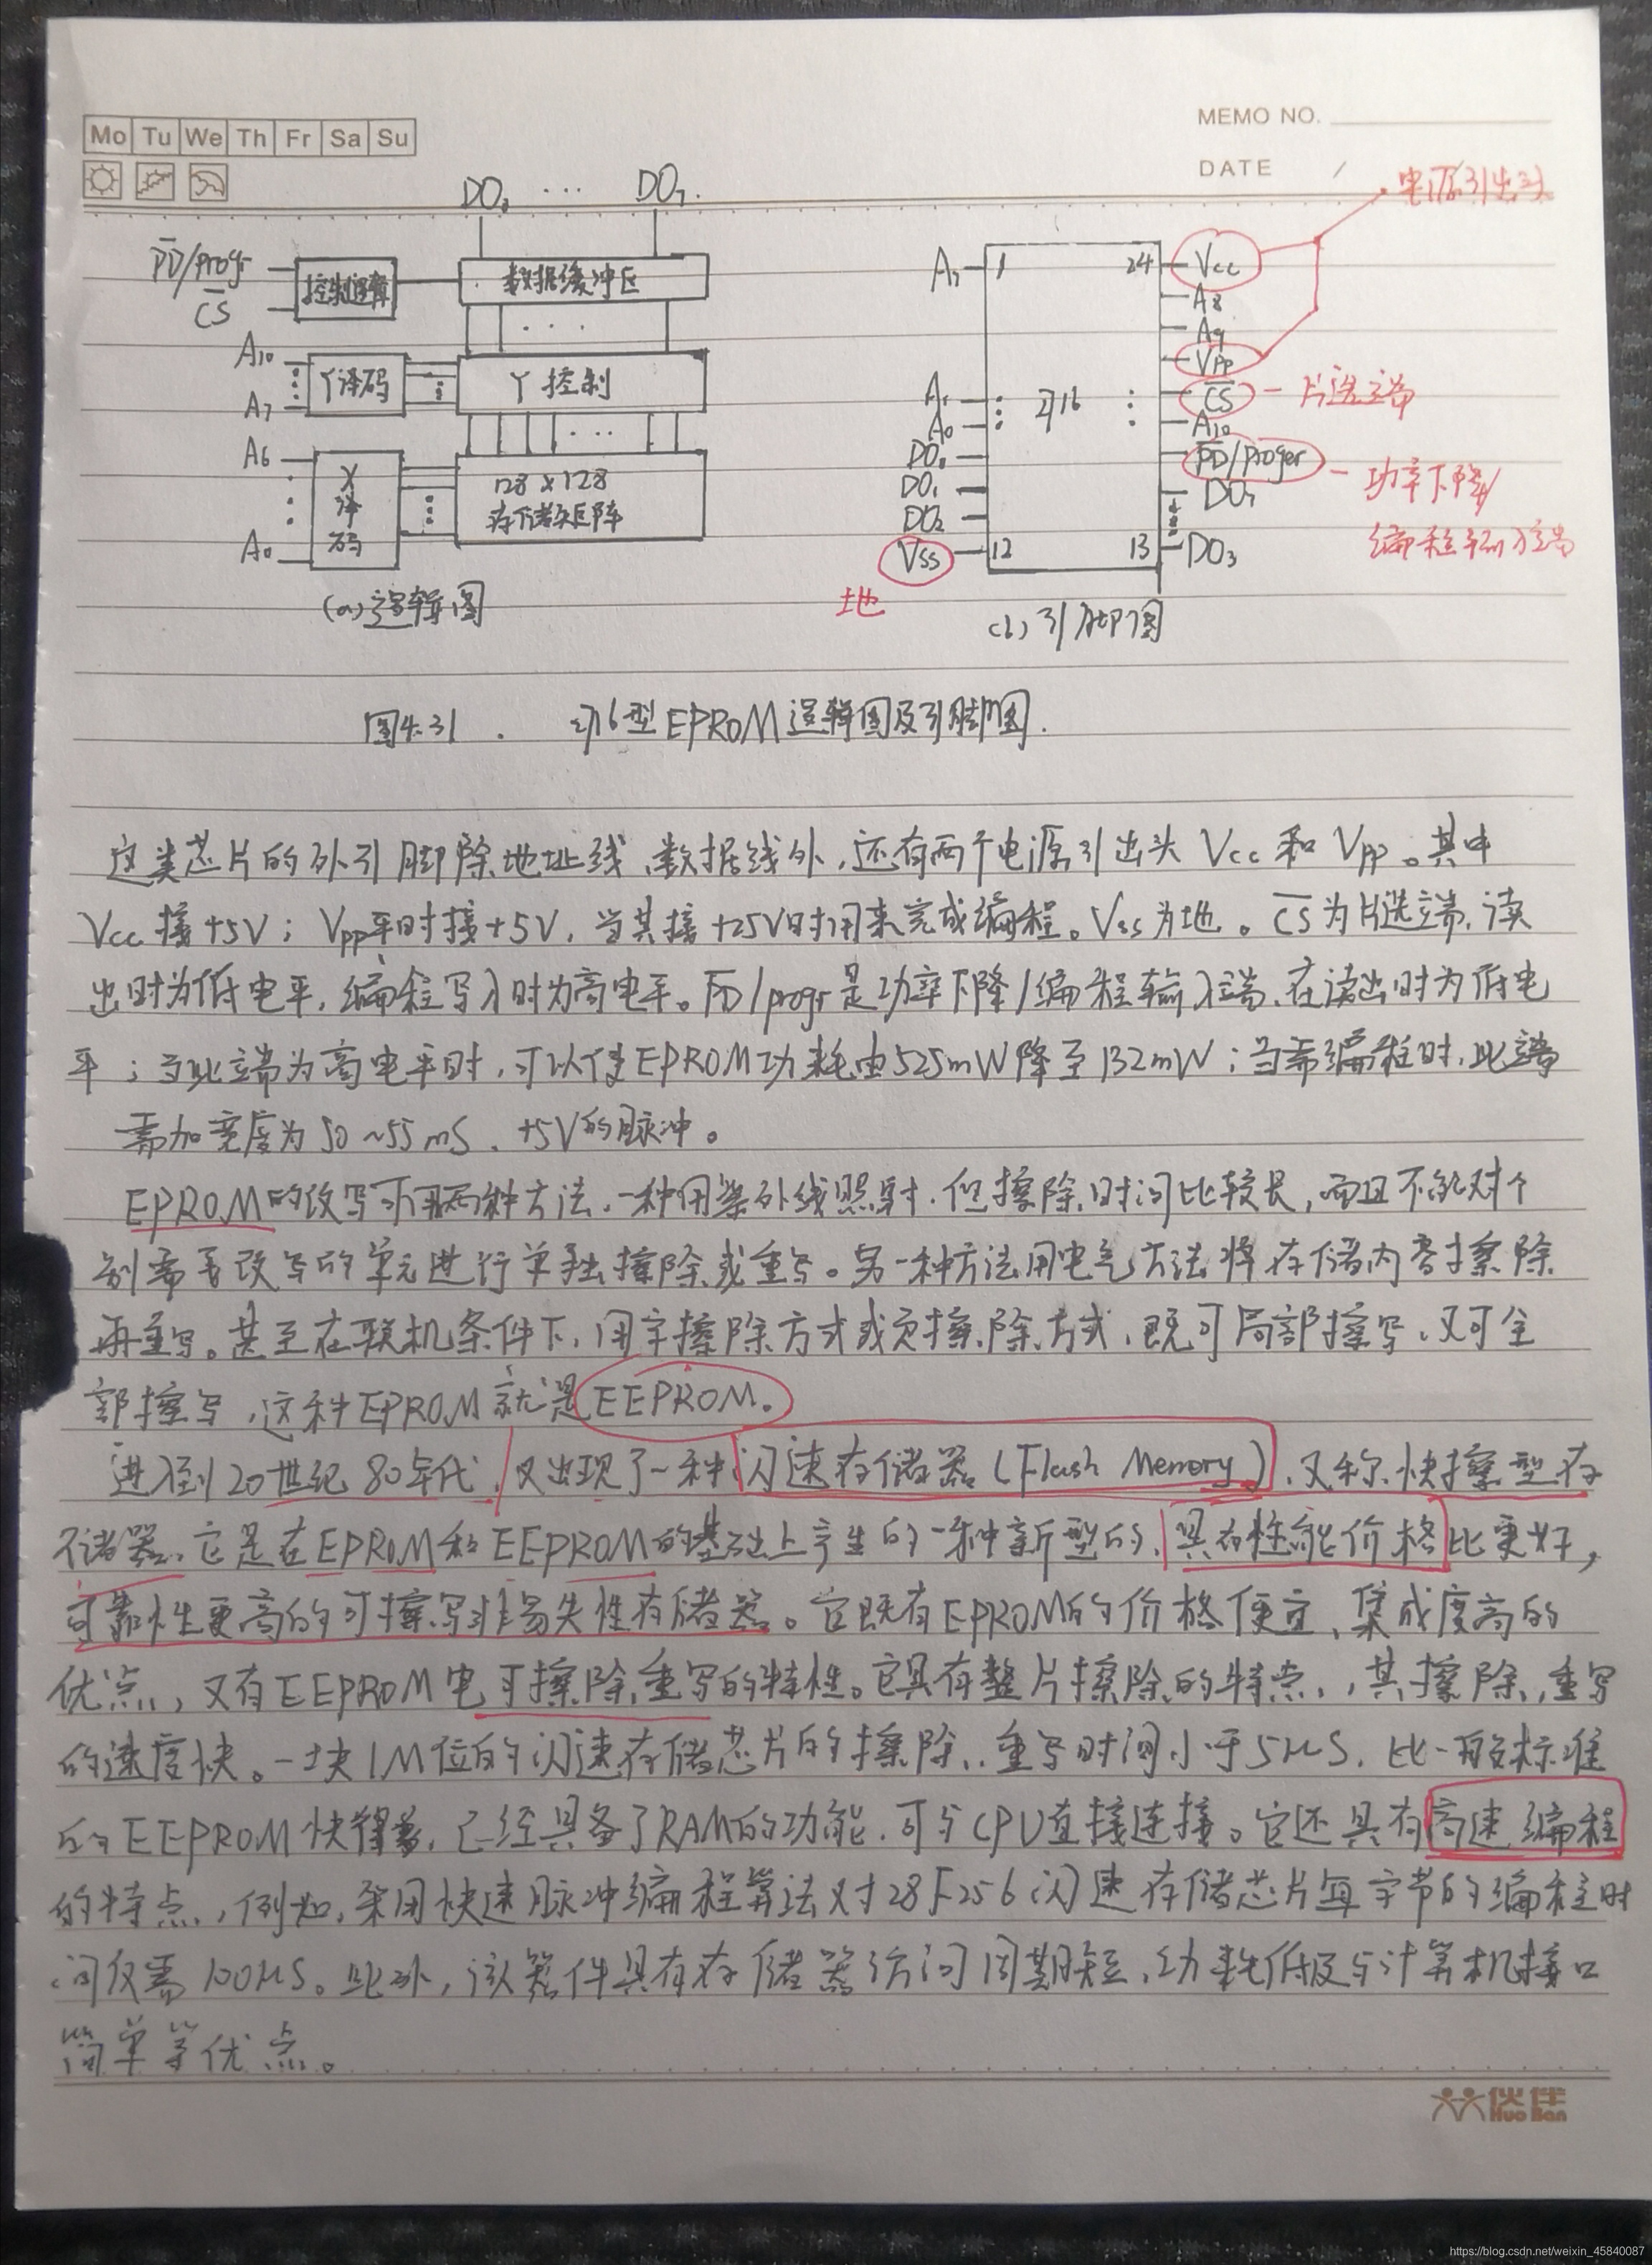 Mo Tu We Th Fr Sa Su
MEMO NO.
DATE /
DO₀ ··· DO₇
电源引出头
P̅D̅/Progr
C̅S̅
控制逻辑
数据缓冲区
A₁₀
A₇
Y译码
Y控制
A₆
A₀
X译码
128×128
存储矩阵
(a)逻辑图
A₇ 1 24 Vcc
A₈
A₉
VPP
A₁ 2716 C̅S̅ — 片选端
A₀ A₁₀
DO₀ P̅D̅/Proger — 功率下降/
DO₁ DO₇
编程输入端
DO₂
Vss 12 13 DO₃
地
(b)引脚图
图4.31 . 2716型EPROM逻辑图及引脚图.
这类芯片的外引脚除地址线、数据线外,还有两个电源引出头Vcc和Vpp。其中
Vcc接+5V;Vpp平时接+5V,当其接+25V时用来完成编程。Vss为地。C̅S̅为片选端,读
出时为低电平,编程写入时为高电平。P̅D̅/progr是功率下降/编程输入端,在读出时为低电
平;当此端为高电平时,可以使EPROM功耗由525mW降至132mW;当需编程时,此端
需加宽度为50~55mS、+5V的脉冲。
EPROM的改写可用两种方法,一种用紫外线照射,但擦除时间比较长,而且不能对个
别需要改写的单元进行单独擦除或重写。另一种方法用电气方法将存储内容擦除
再重写。甚至在联机条件下,用字擦除方式或页擦除方式,既可局部擦写,又可全
部擦写,这种EPROM就是EEPROM。
进入到20世纪80年代,又出现了一种闪速存储器(Flash Memory),又称快擦型存
储器,它是在EPROM和EEPROM的基础上产生的一种新型的,具有性能价格比更好,
可靠性更高的可擦写非易失性存储器。它既有EPROM的价格便宜、集成度高的
优点,又有EEPROM电可擦除重写的特性。它具有整片擦除的特点,其擦除、重写
的速度快。一块1M位的闪速存储芯片的擦除、重写时间小于5μS,比一般标准
的EEPROM快得多,已经具备了RAM的功能,可与CPU直接连接。它还具有高速编程
的特点,例如,采用快速脉冲编程算法对28F256闪速存储芯片每字节的编程时
间仅需100μS。此外,该器件具有存储器访问周期短,功耗低及与计算机接口
简单等优点。
伙伴
Huo Ban
https://blog.csdn.net/weixin_45840087